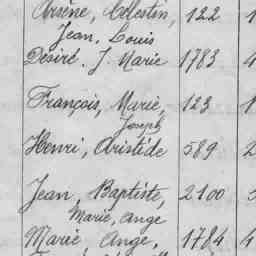 Arsène, Célestin, 122 1
Jean, Louis
Désiré. J. Marie 1783 4
François, Marie, 123 1
Joseph
Henri, Aristide 589 2
Jean, Baptiste, 2100
Marie, Ange
Marie Ange, 1784 4